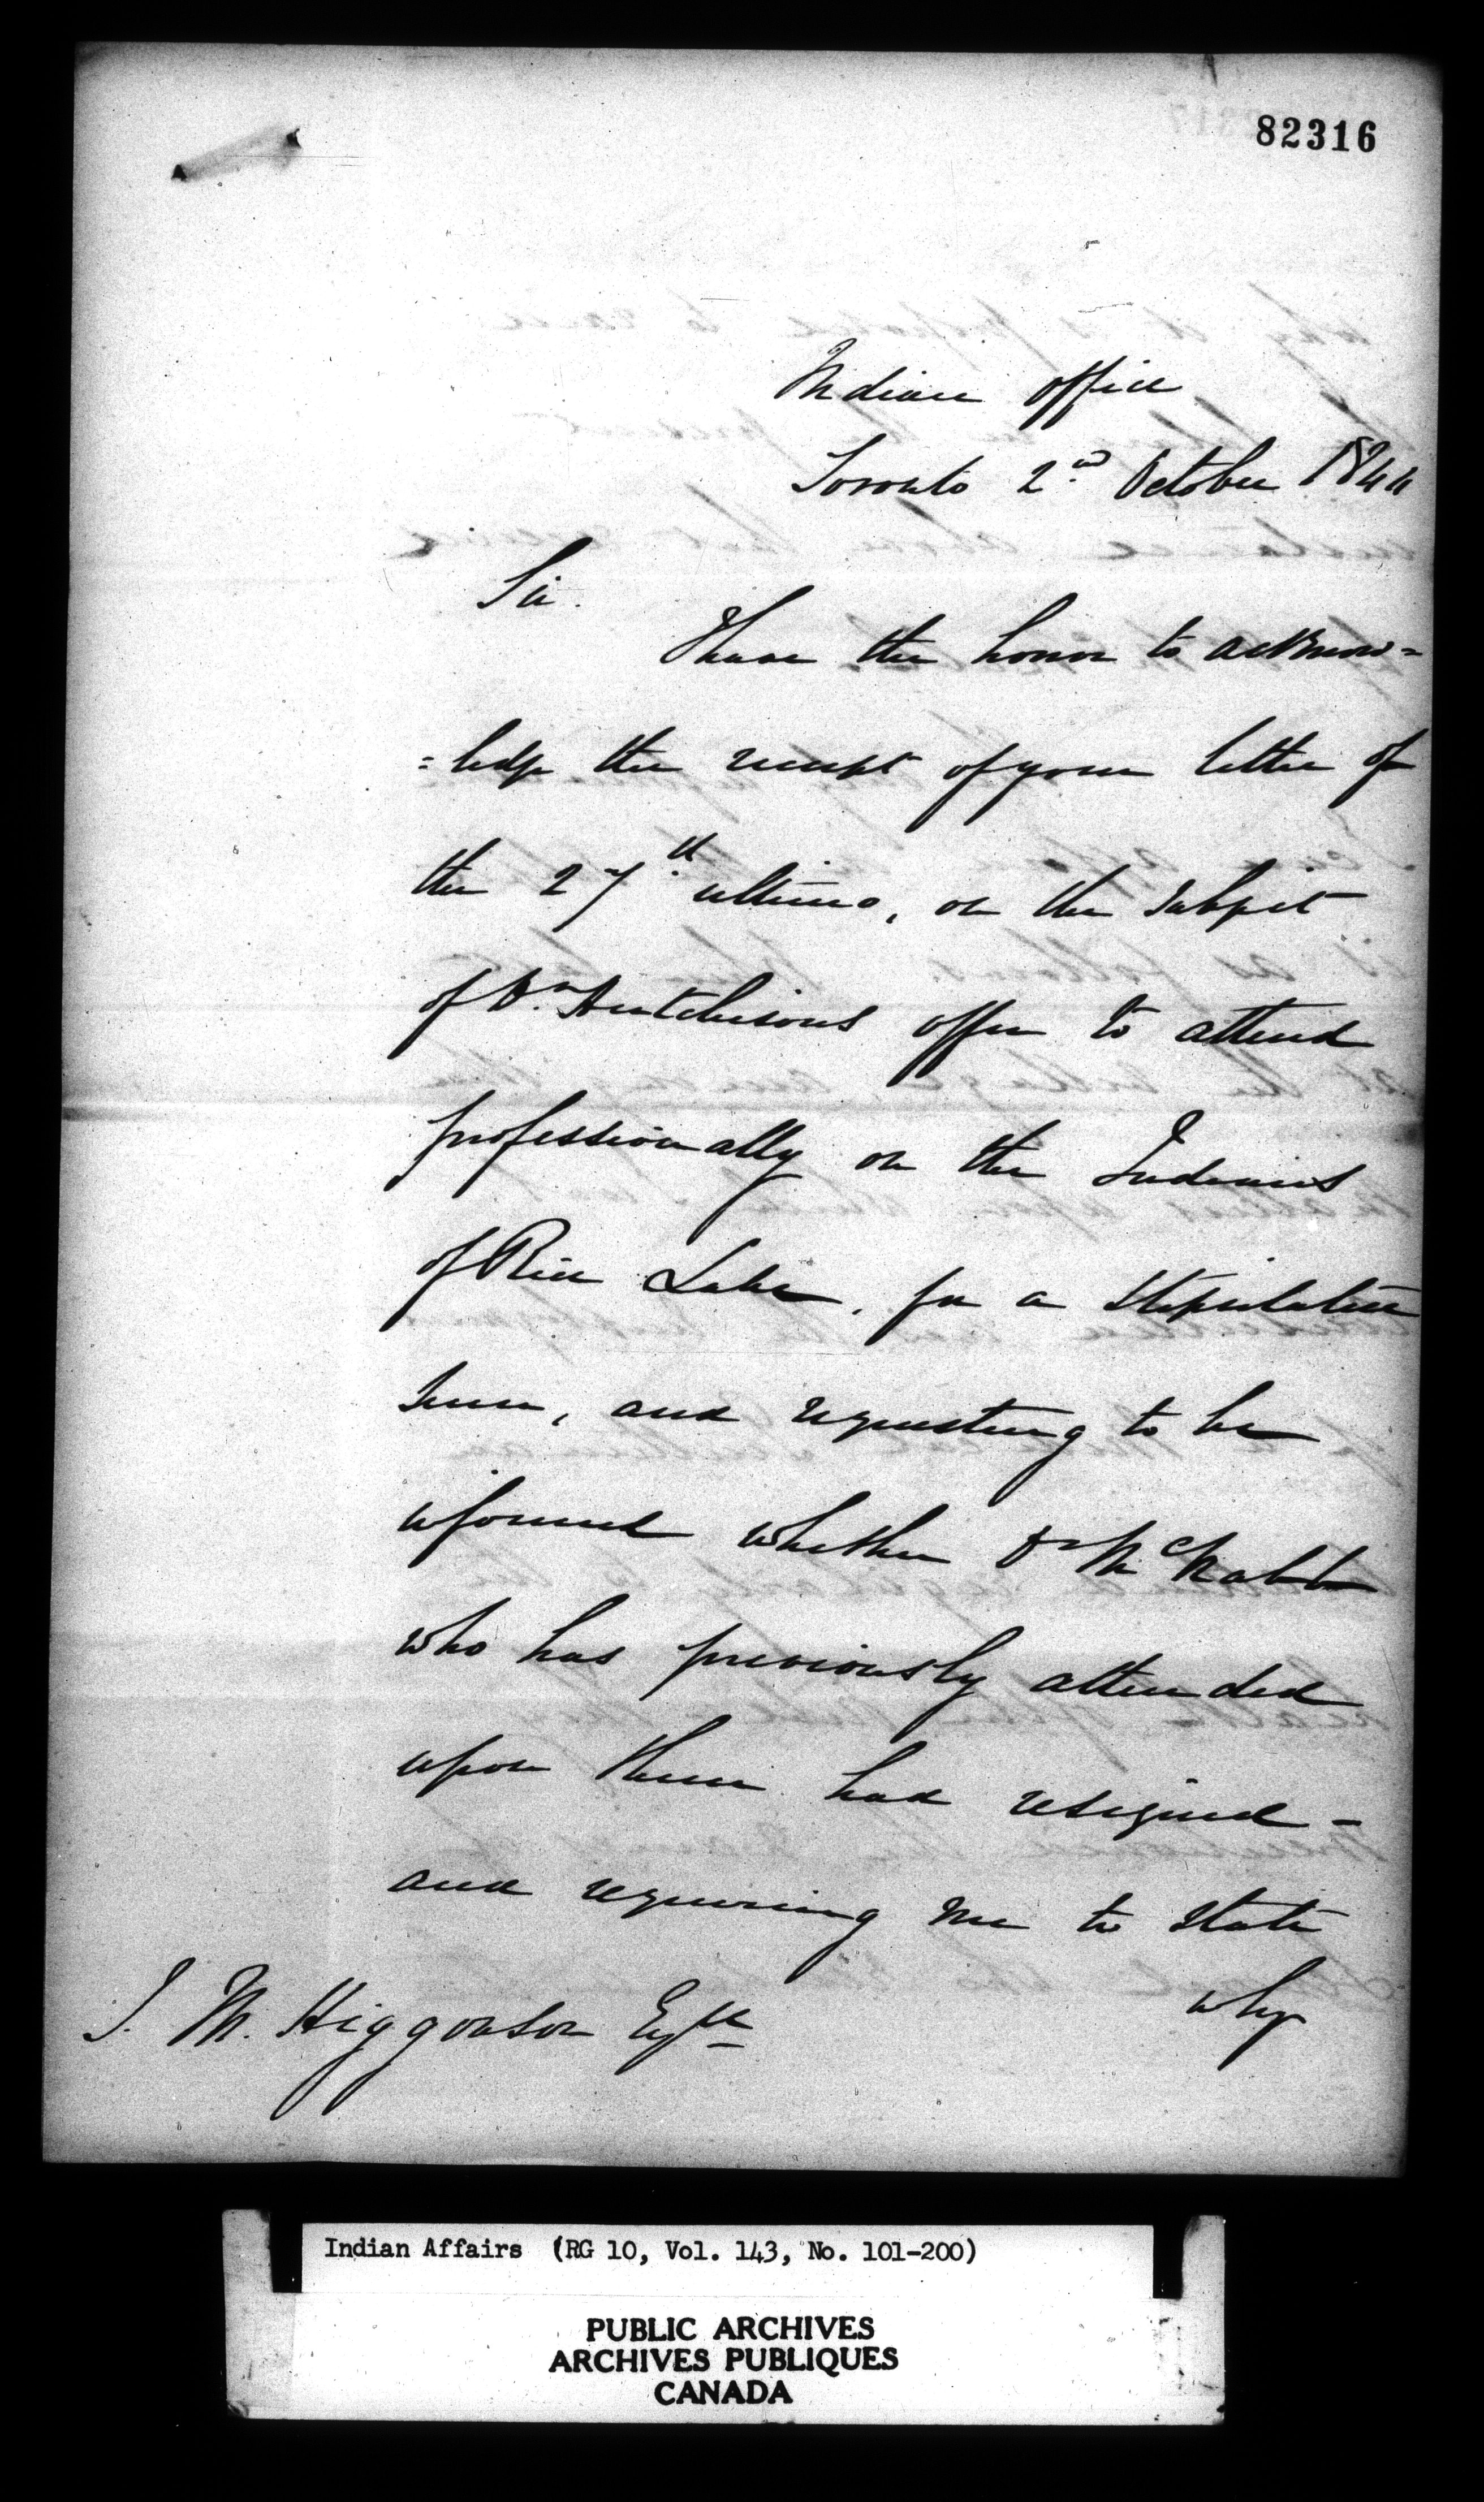 82316
Indian Office
Toronto 2nd October 1844
Sir.
I have the honor to acknow=
=ledge the receipt of your letter of
the 27th ultimo, on the subject
of Dr. Hutchisons offer to attend
professionally on the Indians
of Rice Lake, for a stipulated
sum, and requesting to be
informed whether Dr McNabb
who has previously attended
upon them had resigned -
and requiring me to state
why
J. M. Higgonson Esqre
Indian Affairs (RG 10, Vol. 143, No. 101-200)
PUBLIC ARCHIVES
ARCHIVES PUBLIQUES
CANADA